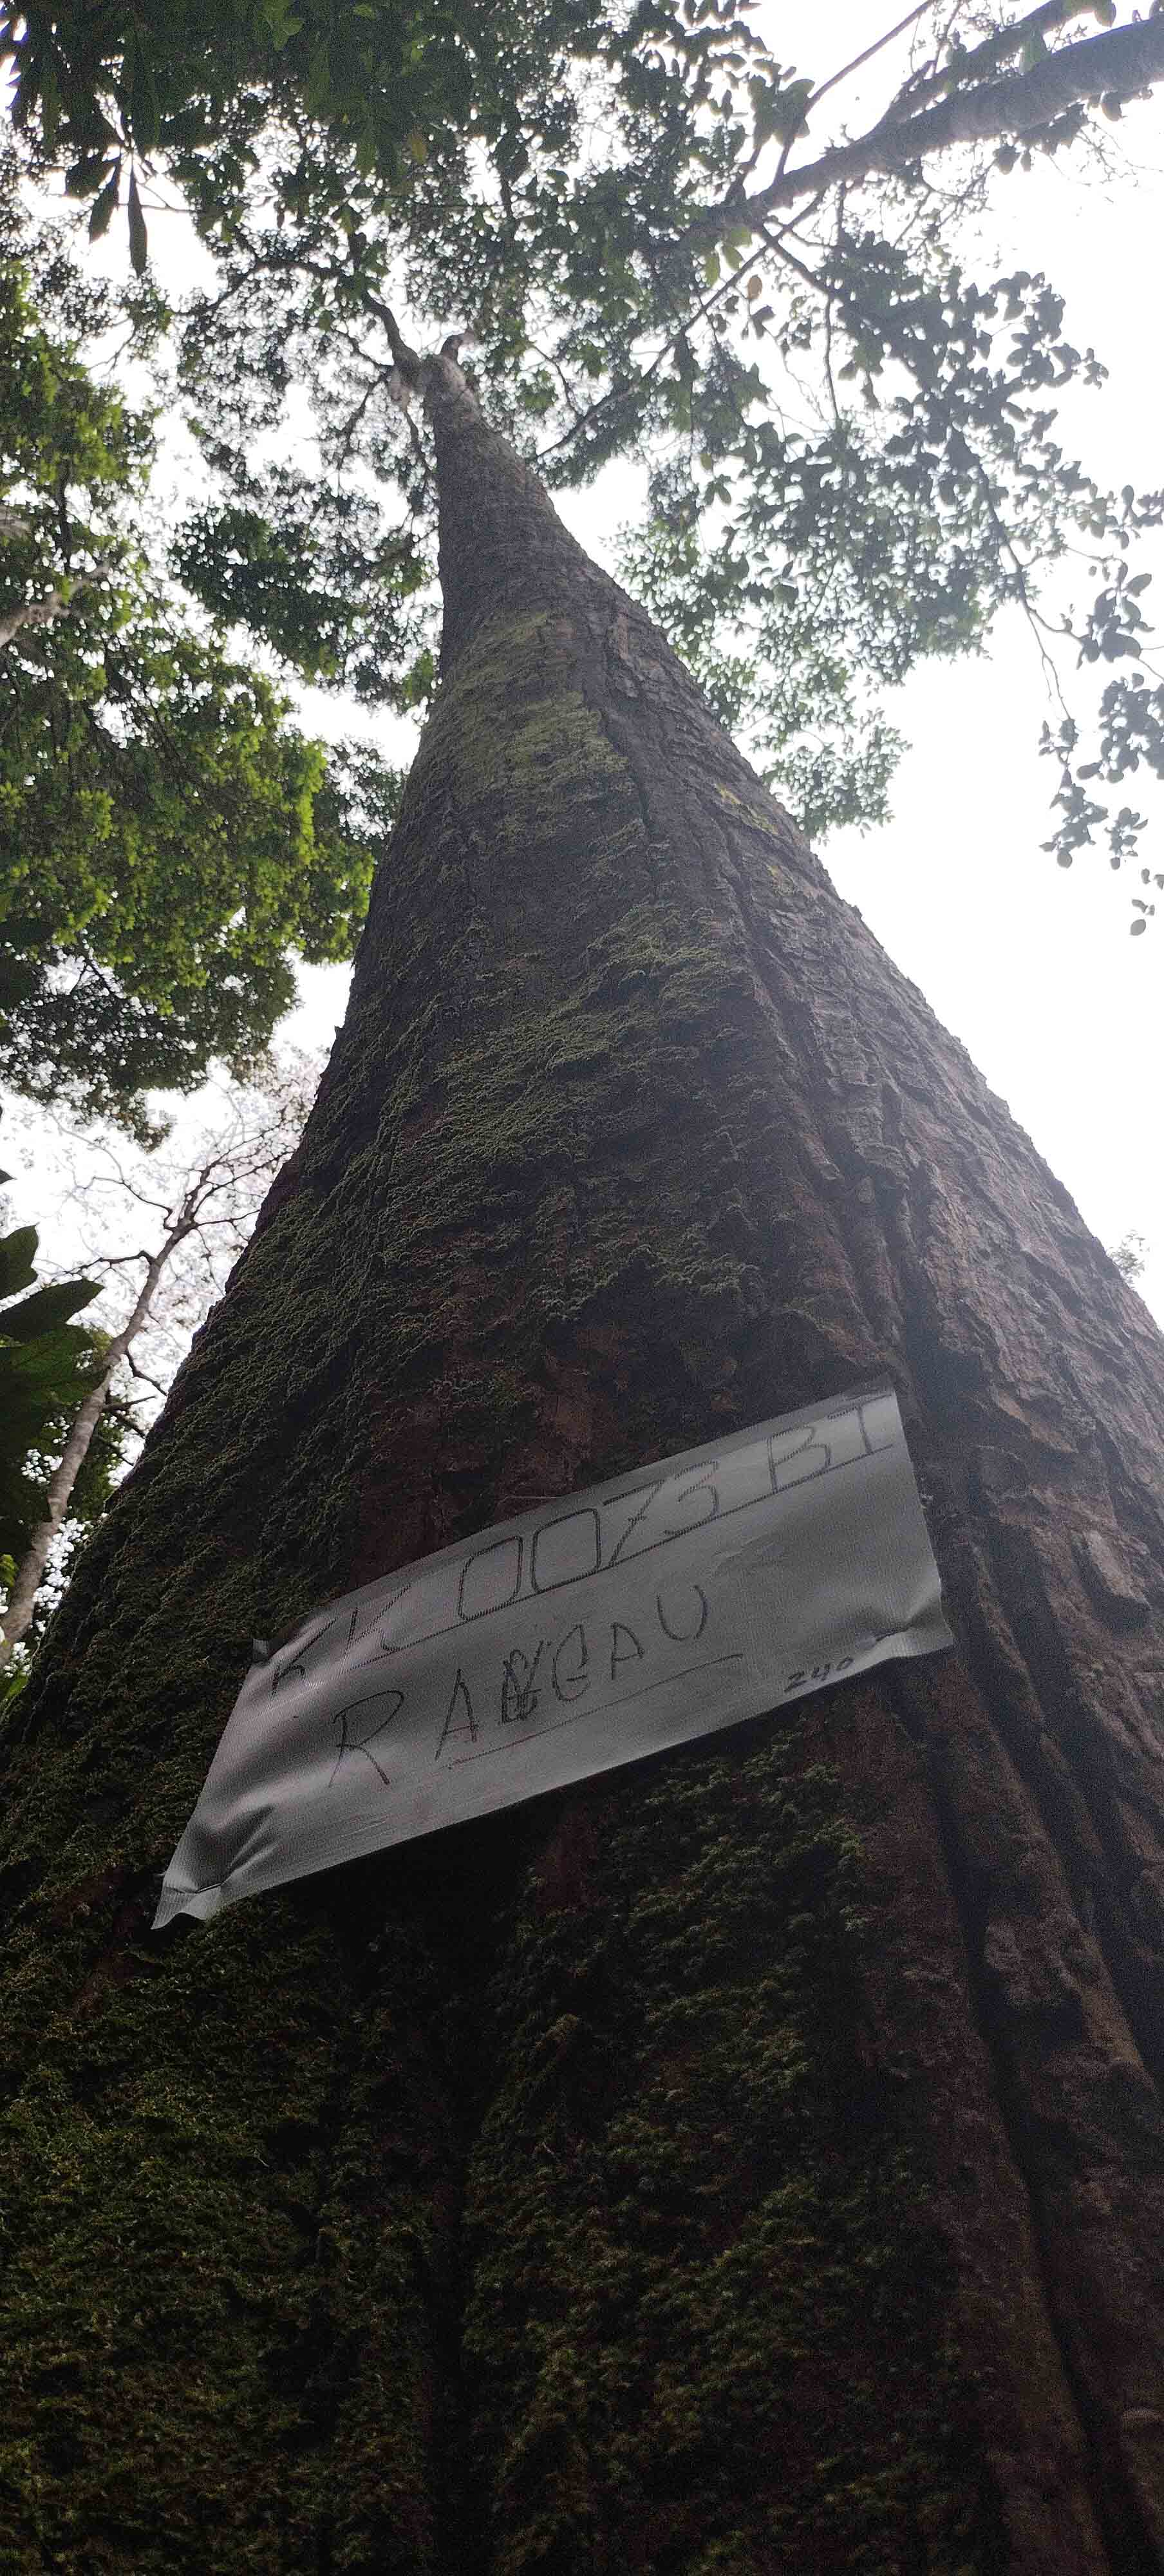 KK 0073 BI
RANGAU
240